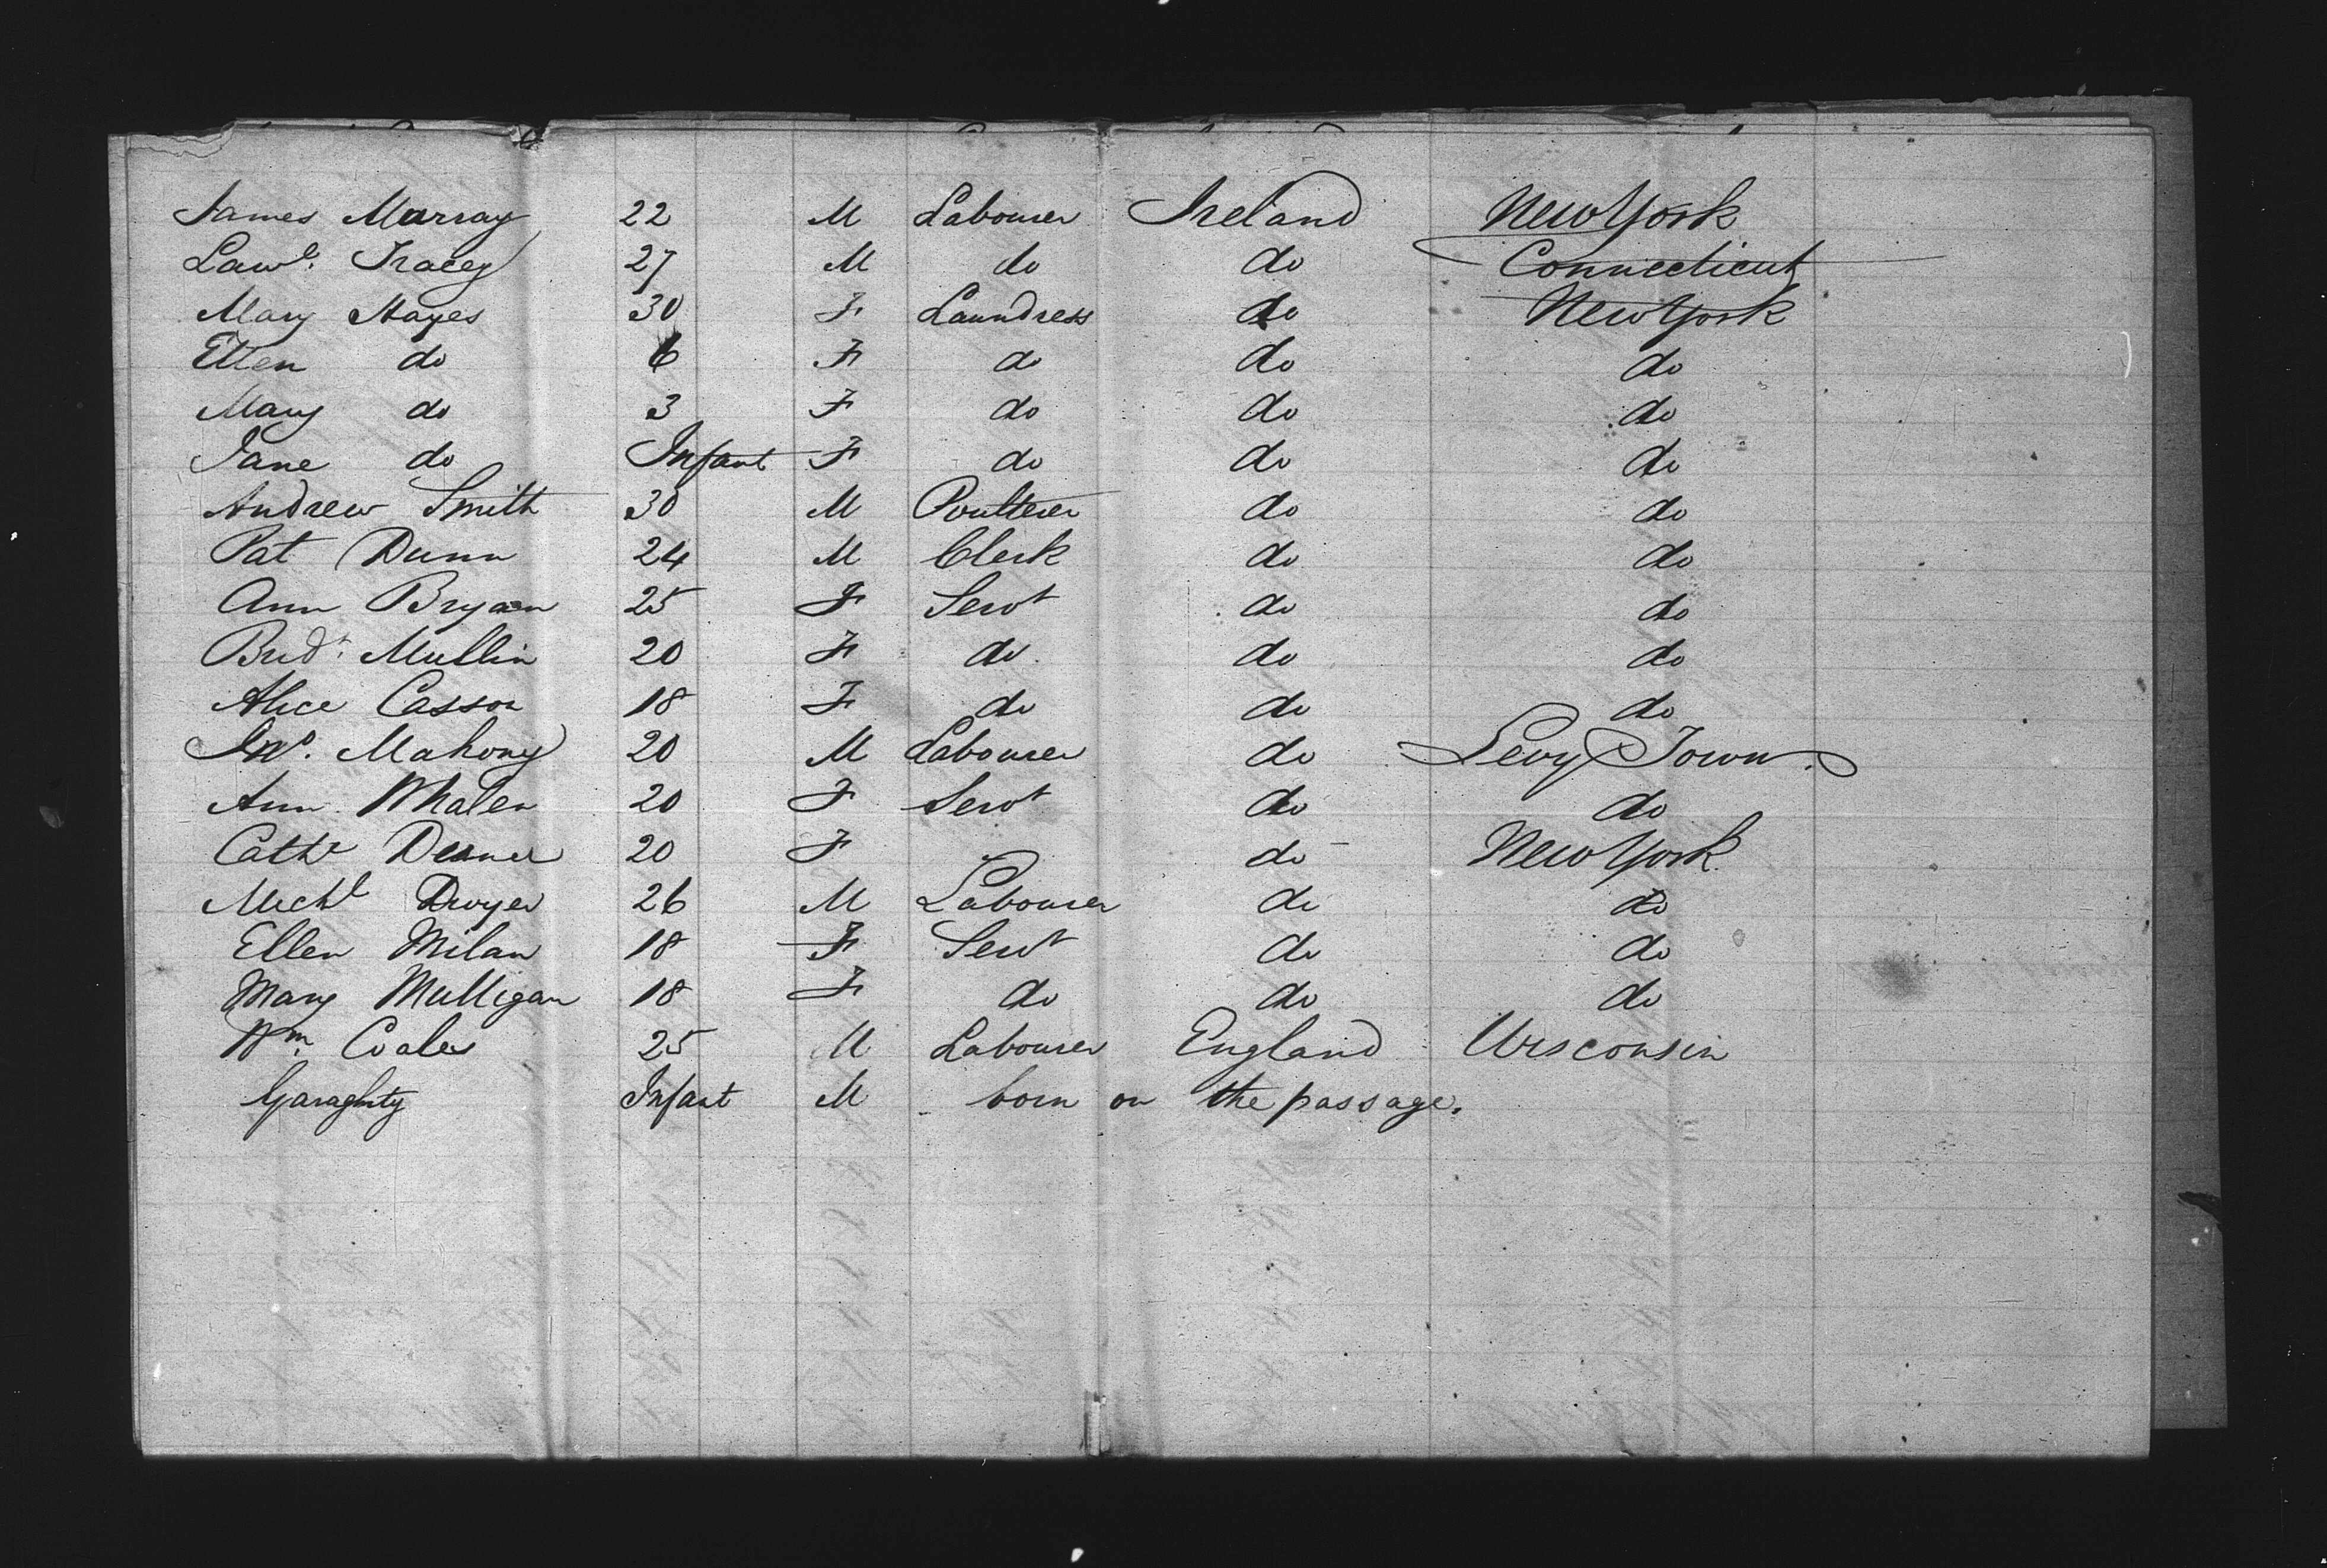 James Murray 22 M Labourer Ireland New York
Lawe. Tracey 27 M do do Connecticut
Mary Hayes 30 F Laundress do New York
Ellen do 6 F do do do
Mary do 3 F do do do
Jane do Infant F do do do
Andrew Smith 30 M Poulterer do do
Pat Dunn 24 M Clerk do do
Ann Bryan 25 F Servt do do
Brid. Mullin 20 F do do do
Alice Casson 18 F do do do
Jno. Mahony 20 M Labourer do Levy Town.
Ann Whalen 20 F Servt do do
Cathe 20 F do New York
Michl Dwyer 26 M Labourer do do
Ellen Milan 18 F Servt do do
Mary Mulligan 18 F do do do
Wm. Coales 25 M Labourer England Wisconsin
Garaghty Infant M born on the passage.